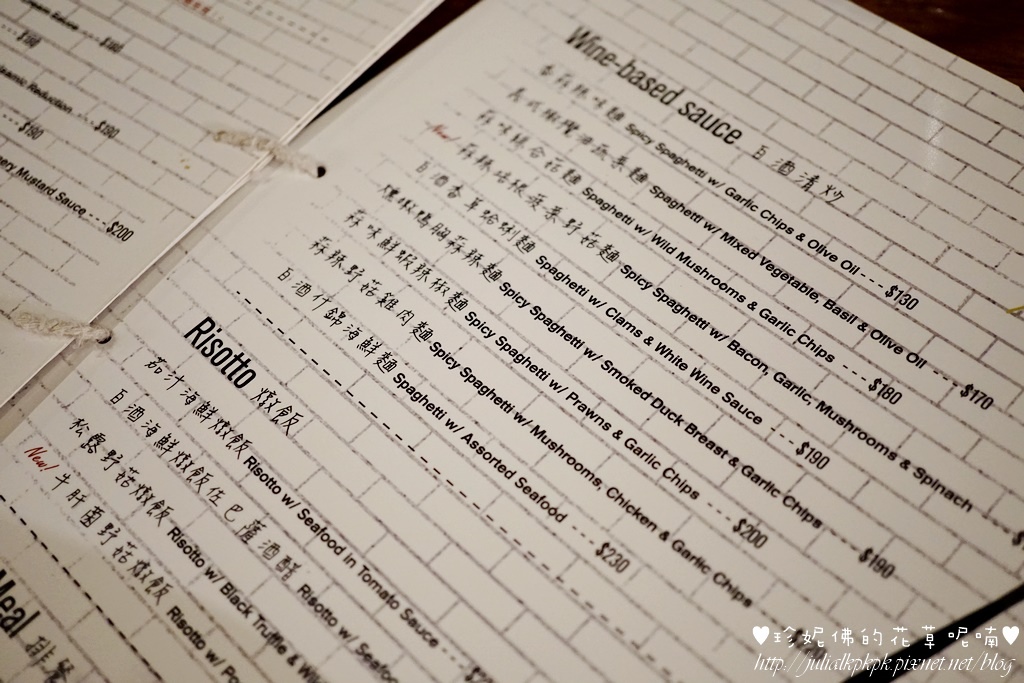 $180
$180
Reduction
$190 $190
Mustard Sauce --- $200
Wine-based sauce 白酒清炒
香蒜辣味麵 Spicy Spaghetti w/ Garlic Chips & Olive Oil ---- $130
義式橄欖油蔬菜麵 Spaghetti w/ Mixed Vegetable, Basil & Olive Oil --- $170
蒜味綜合菇麵 Spaghetti w/ Wild Mushrooms & Garlic Chips ---- $180
New! 蒜辣培根菠菜野菇麵 Spicy Spaghetti w/ Bacon, Garlic, Mushrooms & Spinach
白酒香草蛤蜊麵 Spaghetti w/ Clams & White Wine Sauce ---- $190
燻椒鴨胸蒜辣麵 Spicy Spaghetti w/ Smoked Duck Breast & Garlic Chips --- $190
蒜味鮮蝦辣椒麵 Spicy Spaghetti w/ Prawns & Garlic Chips ---- $200
蒜辣野菇雞肉麵 Spicy Spaghetti w/ Mushrooms, Chicken & Garlic Chips
白酒什錦海鮮麵 Spaghetti w/ Assorted Seafood ---- $230
Risotto 燉飯
茄汁海鮮燉飯 Risotto w/ Seafood in Tomato Sauce
白酒海鮮燉飯佐巴薩酒醋 Risotto w/
松露野菇燉飯 Risotto w/ Black Truffle &
New! 牛肝菌野菇燉飯 Risotto w/
Meal 排餐
♥珍妮佛的花草呢喃♥
http://julialkpkpk.pixnet.net/blog